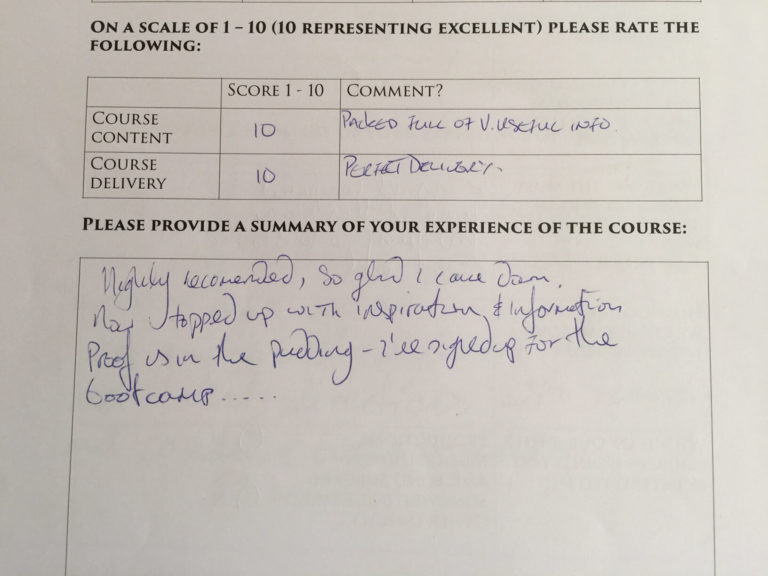 ON A SCALE OF 1 – 10 (10 REPRESENTING EXCELLENT) PLEASE RATE THE
FOLLOWING:
SCORE 1 - 10 COMMENT?
COURSE CONTENT 10 PACKED FULL OF V.USEFUL INFO.
COURSE DELIVERY 10 PERFECT DELIVERY.
PLEASE PROVIDE A SUMMARY OF YOUR EXPERIENCE OF THE COURSE:
Highly recomended, So glad I came down.
Now topped up with inspiration & information
Proof is in the pudding – I've signed up for the
bootcamp.....